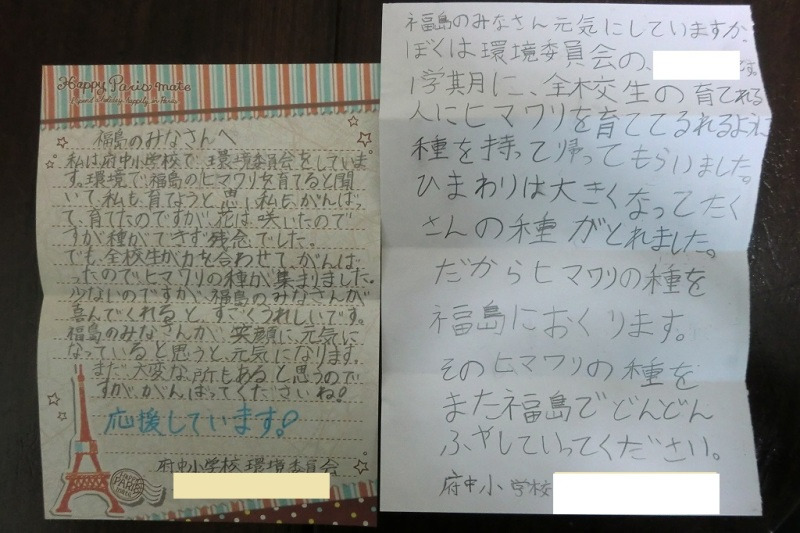 Happy Paris mate
福島のみなさんへ
私は府中小学校で、環境委員会をしていま
す。環境で福島のヒマワリを育てると聞
いて、私も育てようと思い、私も、がんばっ
て、育てたのですが、花は咲いたので
すが種ができず残念でした。
でも、全校生が力を合わせて、がんば
ったのでヒマワリの種が集まりました。
少ないのですが、福島のみなさんが
喜んでくれると、すごくうれしいです。
福島のみなさんが、笑顔に、元気に
なっていると思うと、元気になります。
まだ大変な所もあると思うので
すが、がんばってくださいね!
応援しています!
府中小学校 環境委員会
福島のみなさん元気にしていますか。
ぼくは環境委員会の、
です。
1学期に、全校生の育てれる
人にヒマワリを育ててもれるように
種を持って帰ってもらいました。
ひまわりは大きくなってたく
さんの種がとれました。
だからヒマワリの種を
福島におくります。
そのヒマワリの種を
また福島でどんどん
ふやしていってください。
府中小学校